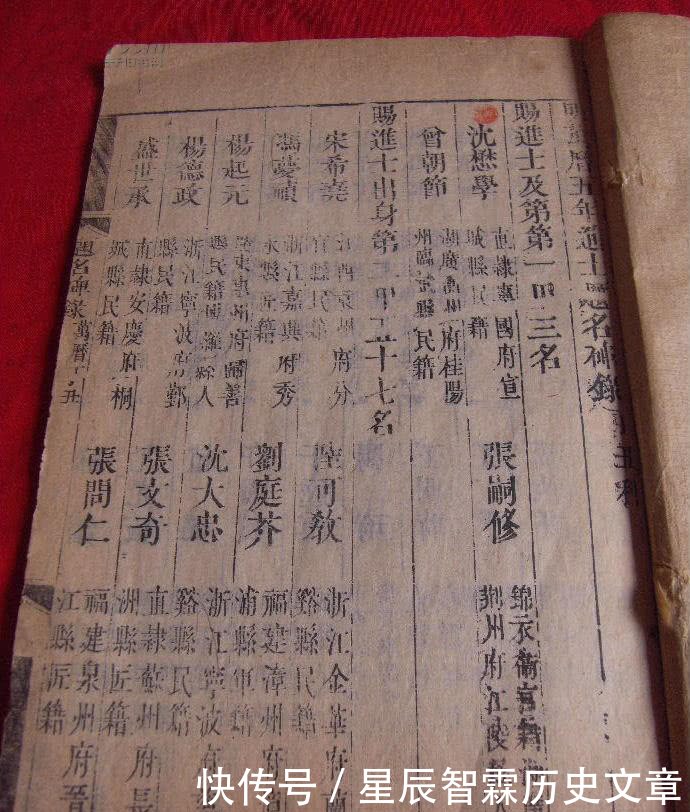 明萬曆五年進士題名碑錄丁丑科
賜進士及第第一甲三名
沈懋學
直隷寧國府宣
城縣民籍
張嗣修
錦衣衛官籍
荆州府江陵
曾朝節
湖廣衡州府桂陽
州臨武縣民籍
賜進士出身第二甲五十七名
宋希堯
縣民籍
陸可教
浙江金華府
谿縣民籍
馮夢禎
浙江嘉興府秀
水縣民籍
劉庭芥
福建漳州府
浦縣軍籍
楊起元
廣東惠州府歸善
縣民籍
沈大忠
浙江寧波府
谿縣民籍
楊德政
浙江寧波府鄞
縣民籍
張文奇
直隷蘇州府長
洲縣匠籍
盛世承
直隷安慶府桐
城縣民籍
張問仁
福建泉州府晉
江縣匠籍
題名碑錄萬曆丁丑
快传号/星辰智霖历史文章